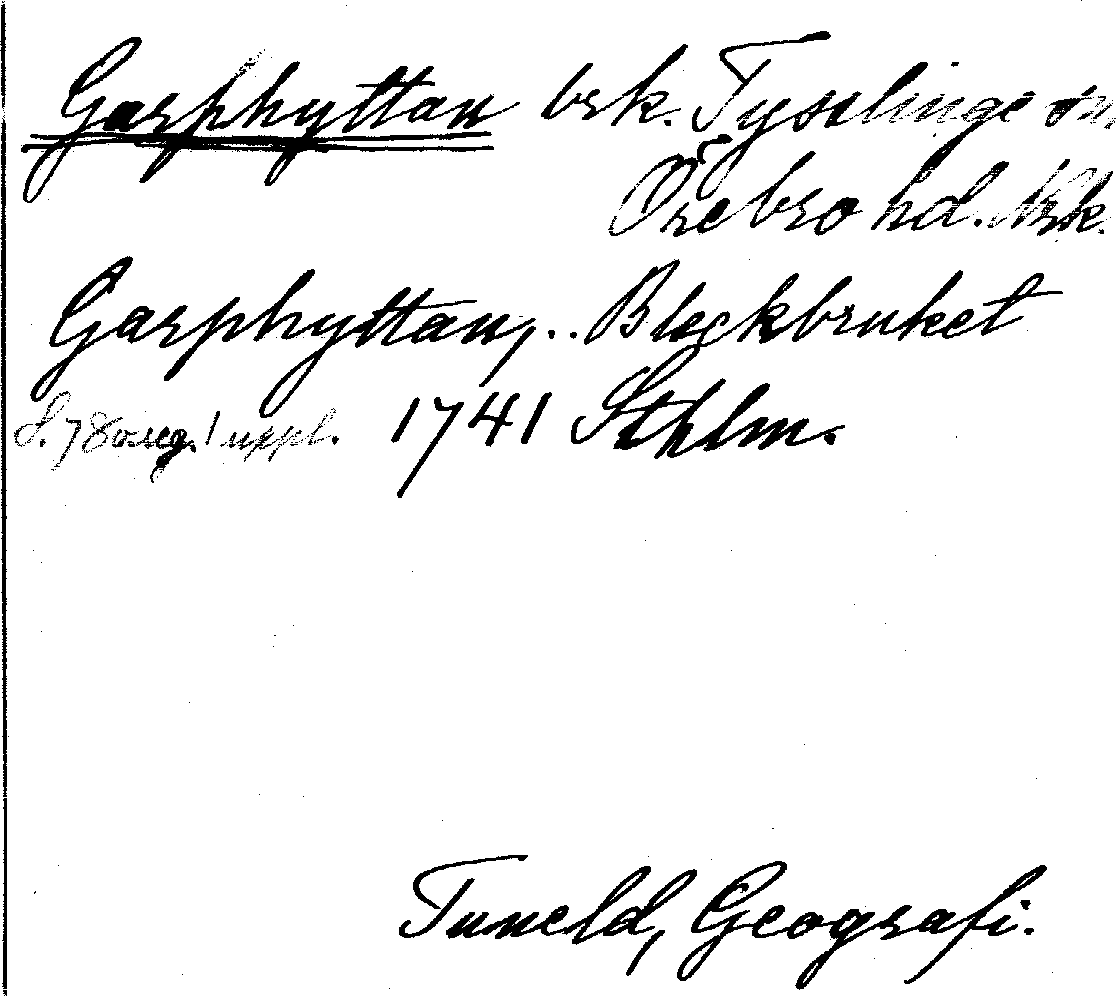 Garphyttan brk. Tysslinge sn,
Örebro hd. Nrk.
Garphyttan, .. Bleckbruket
S. 78 1 uppl. 1741 Sthlm.
Tuneld, Geografi.